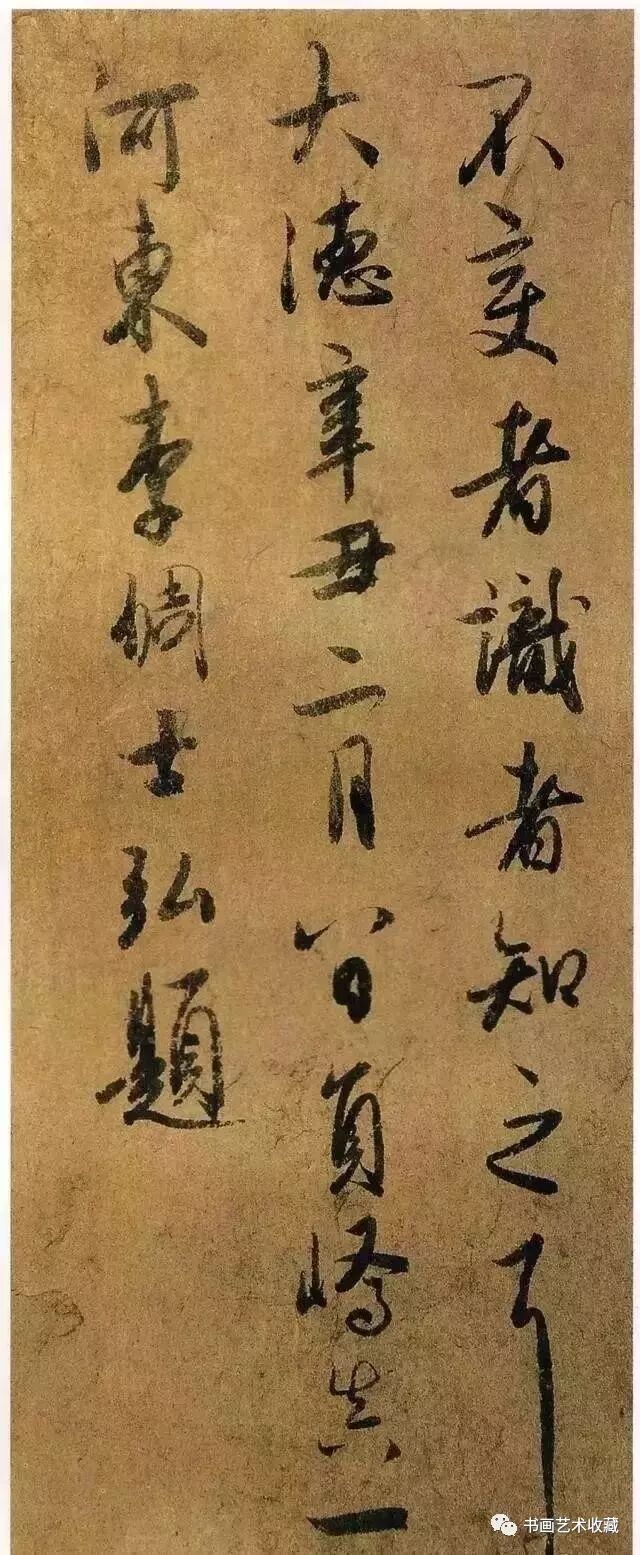 不变者識者知之耳
大德辛丑二月八日員嶠真一
河東李倜士弘題
书画艺术收藏